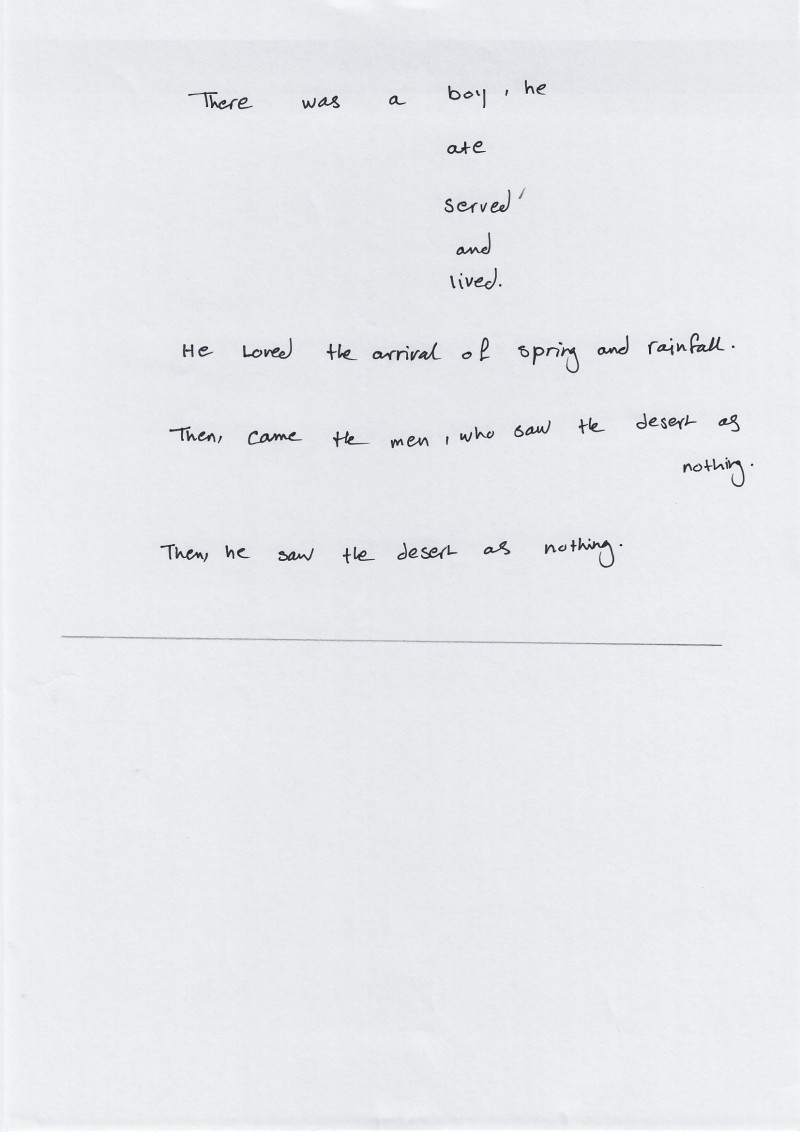 There was a boy, he
ate
served'
and
lived.
He Loved the arrival of spring and rainfall.
Then, came the men, who saw the desert as
nothing.
Then, he saw the desert as nothing.